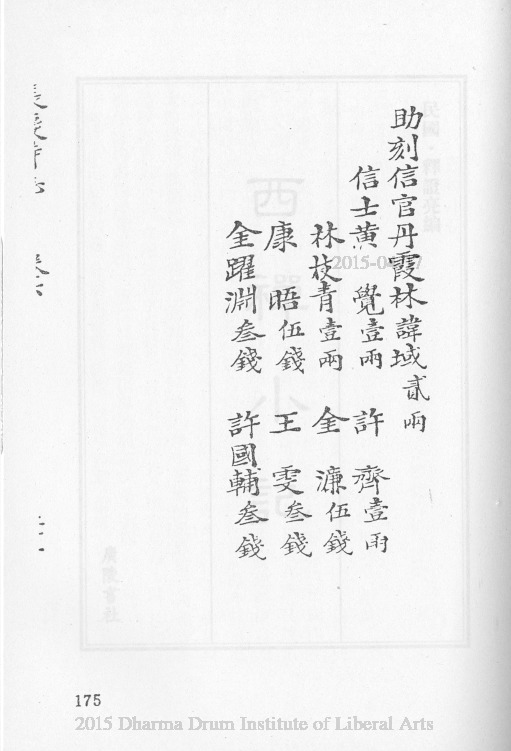 助刻信官丹霞林諱域貳兩
信士黃覺壹兩 許齊壹兩
林枝青壹兩 金濂伍錢
康晤伍錢 王雯叁錢
金躍淵叁錢 許國輔叁錢
長慶寺志 卷六
175
2015 Dharma Drum Institute of Liberal Arts